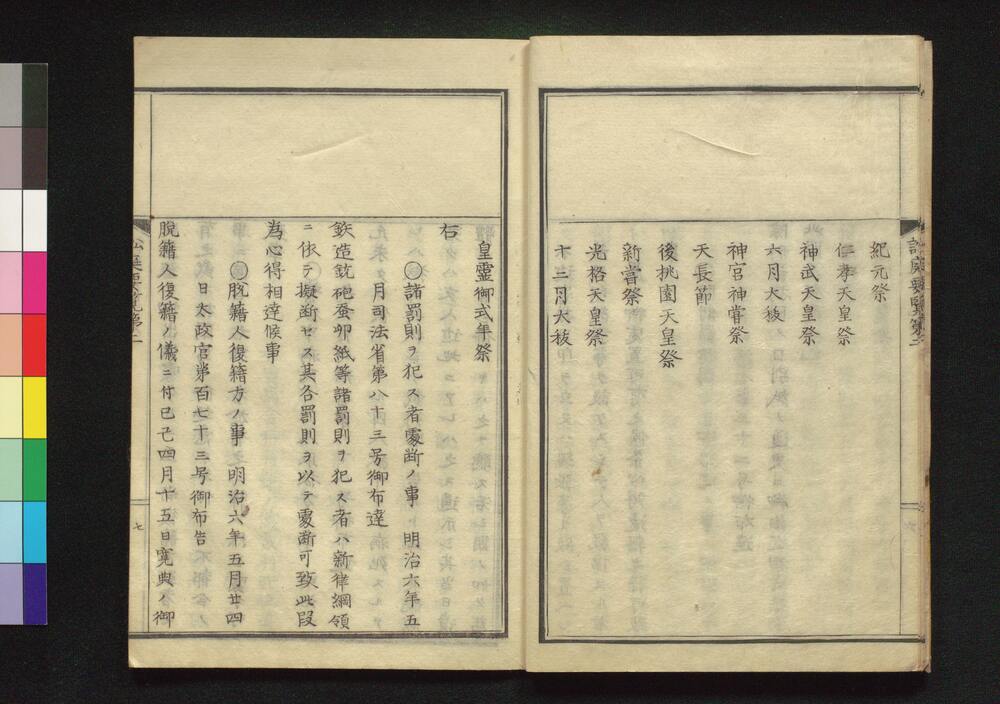 紀元祭
仁孝天皇祭
神武天皇祭
六月大祓
神宮神嘗祭
天長節
後桃園天皇祭
新嘗祭
光格天皇祭
十二月大祓
皇霊御式年祭
右
諸罰則ヲ犯ス者處断ノ事 明治六年五
月司法省第八十三号御布達
鉄造銃砲蚕卵紙等諸罰則ヲ犯ス者ハ新律綱領
ニ依テ擬断セス其各罰則ヲ以テ處断可致此段
為心得相達候事
脱籍人復籍方ノ事 明治六年五月廿四
日太政官第百七十三号御布告
脱籍人復籍ノ儀ニ付已己四月十五日寛典ノ御
七